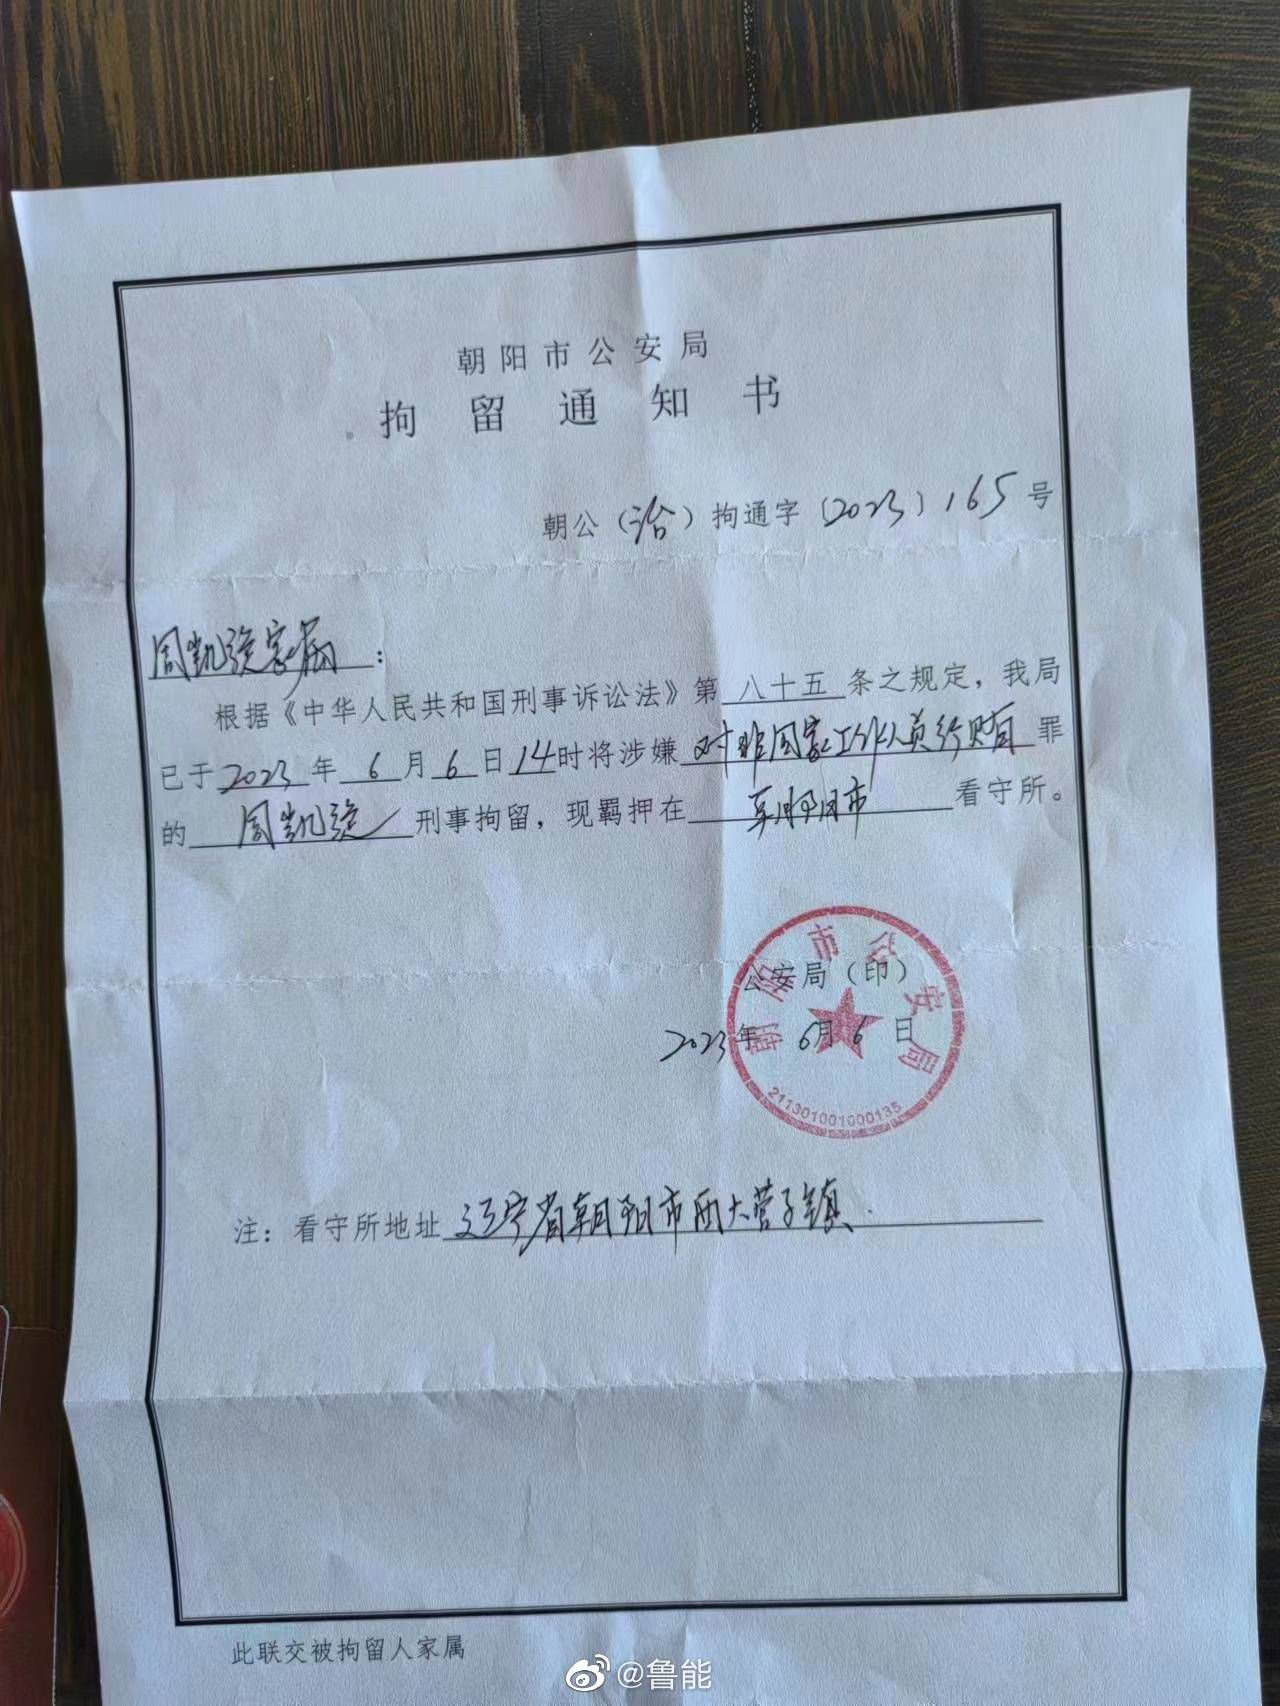 朝阳市公安局
拘留通知书
朝公（治）拘通字〔2023〕165号
周凯旋家属：
根据《中华人民共和国刑事诉讼法》第八十五条之规定，我局
已于2023年6月6日14时将涉嫌对非国家工作人员行贿罪
的周凯旋刑事拘留，现羁押在朝阳市看守所。
朝阳市公安局
公安局（印）
2023年6月6日
211301001000135
注：看守所地址辽宁省朝阳市西大营子镇.
此联交被拘留人家属
@鲁能